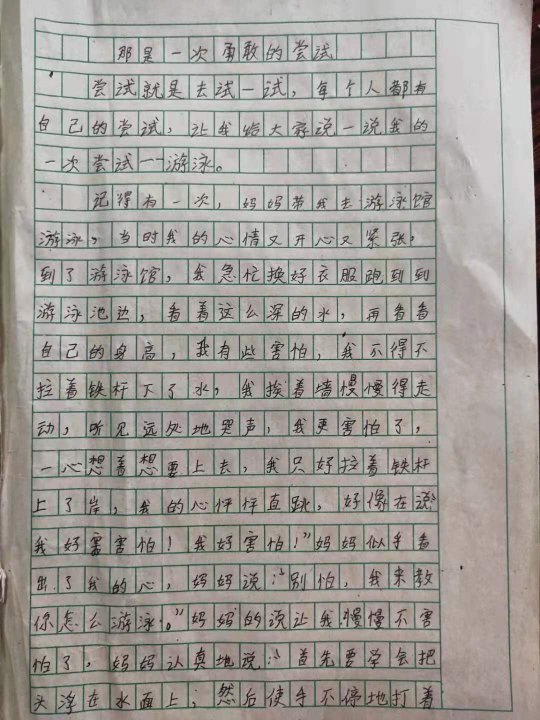 那是一次勇敢的尝试
尝试就是去试一试，每个人都有
自己的尝试，让我给大家说一说我的
一次尝试一一游泳。
记得有一次，妈妈带我去游泳馆
游泳，当时我的心情又开心又紧张，
到了游泳馆，我急忙换好衣服跑到到
游泳池边，看着这么深的水，再看看
自己的身高，我有些害怕，我不得不
拉着铁杆下了水，我挨着墙慢慢得走
动，听见远处地哭声，我更害怕了，
一心想着想要上去，我只好拉着铁杆
上了岸，我的心怦怦直跳，好像在说“
我好害害怕！我好害怕！”妈妈似乎看
出了我的心，妈妈说：“别怕，我来教
你怎么游泳。”妈妈的说让我慢慢不害
怕了，妈妈认真地说：“首先要学会把
头浮在水面上，然后使手不停地打着